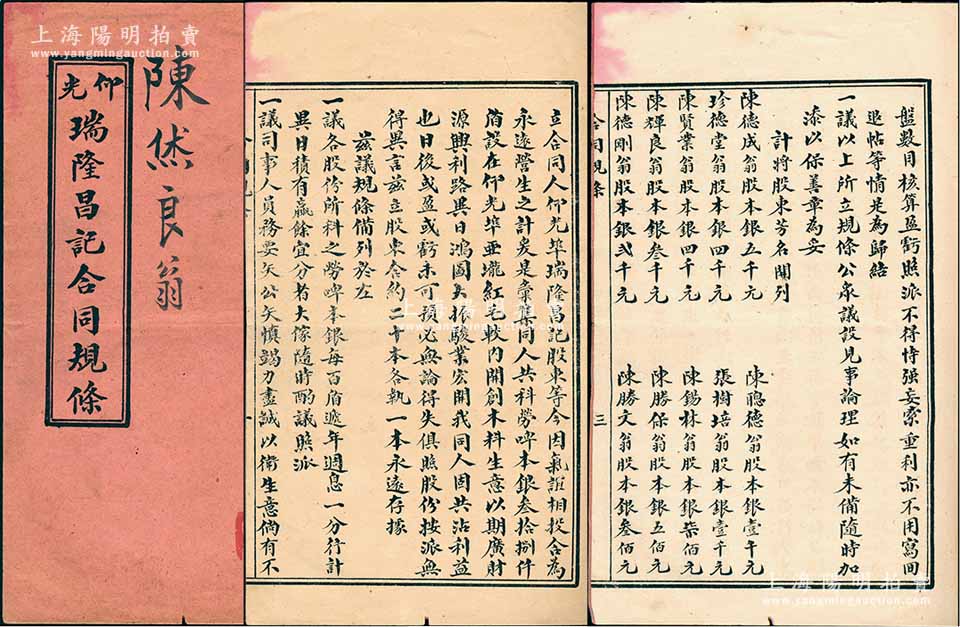 上海陽明拍賣
www.yangmingauction.com
陳烋良翁
仰光
瑞隆昌記合同規條
立合同人仰光埠瑞隆昌記股東等今因氣誼相投合為
永遠營生之計爰是彙集同人共科勞啤本銀叁拾捌件
酋設在仰光埠亜壠紅毛較內開創木料生意以期廣財
源興利路異日鴻圖大振駿業宏開我同人固共沾利益
也日後或盈或虧未可預必無論得失俱照股份按派無
得異言茲立股東合約二十本各執一本永遠存據
茲議規條備列於左
一議各股份所科之勞啤本銀每百盾遞年週息一分行計
異日積有贏餘宜分者大傢隨時酌議照派
一議司事人員務要矢公矢慎竭力盡誠以衛生意倘有不
合同規條
一
上海陽明拍賣
www.yangmingauction.com
盤數目核算盈虧照派不得恃强妄索重利亦不用寫回
退帖等情是為歸結
一議以上所立規條公衆議設見事論理如有未備隨時加
添以保善章為妥
計將股東芳名開列
陳德成翁股本銀五千元 陳聰德翁股本銀壹千元
珍德堂翁股本銀四千元 張樹培翁股本銀壹千元
陳賢業翁股本銀四千元 陳錫林翁股本銀柒佰元
陳輝良翁股本銀叁千元 陳勝保翁股本銀五佰元
陳德剛翁股本銀弍千元 陳勝文翁股本銀叁佰元
合同規條
三
上海陽明拍賣
www.yangmingauction.com